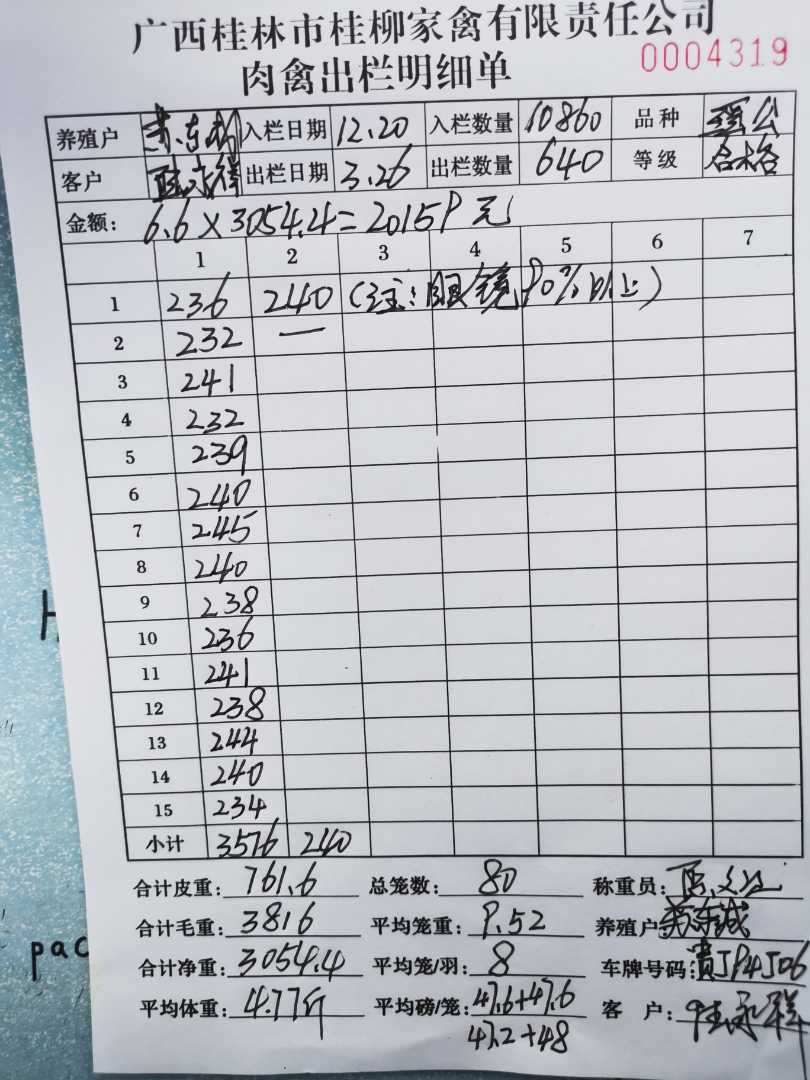 广西桂林市桂柳家禽有限责任公司
肉禽出栏明细单 0004319
养殖户 入栏日期 12.20 入栏数量 10860 品种
客户 出栏日期 3.26 出栏数量 640 等级 合格
金额: 6.6×3054.4=20159元
1 2 3 4 5 6 7
1 236 240 (注:眼镜90%以上)
2 232 —
3 241
4 232
5 239
6 240
7 245
8 240
9 238
10 236
11 241
12 238
13 244
14 240
15 234
小计 3576 240
合计皮重: 761.6 总笼数: 80 称重员:
合计毛重: 3816 平均笼重: 9.52 养殖户
合计净重: 3054.4 平均笼/羽: 8 车牌号码: 贵JP4J06
平均体重: 4.77斤 平均磅/笼: 47.6+47.6 客 户:
47.2+48
pac